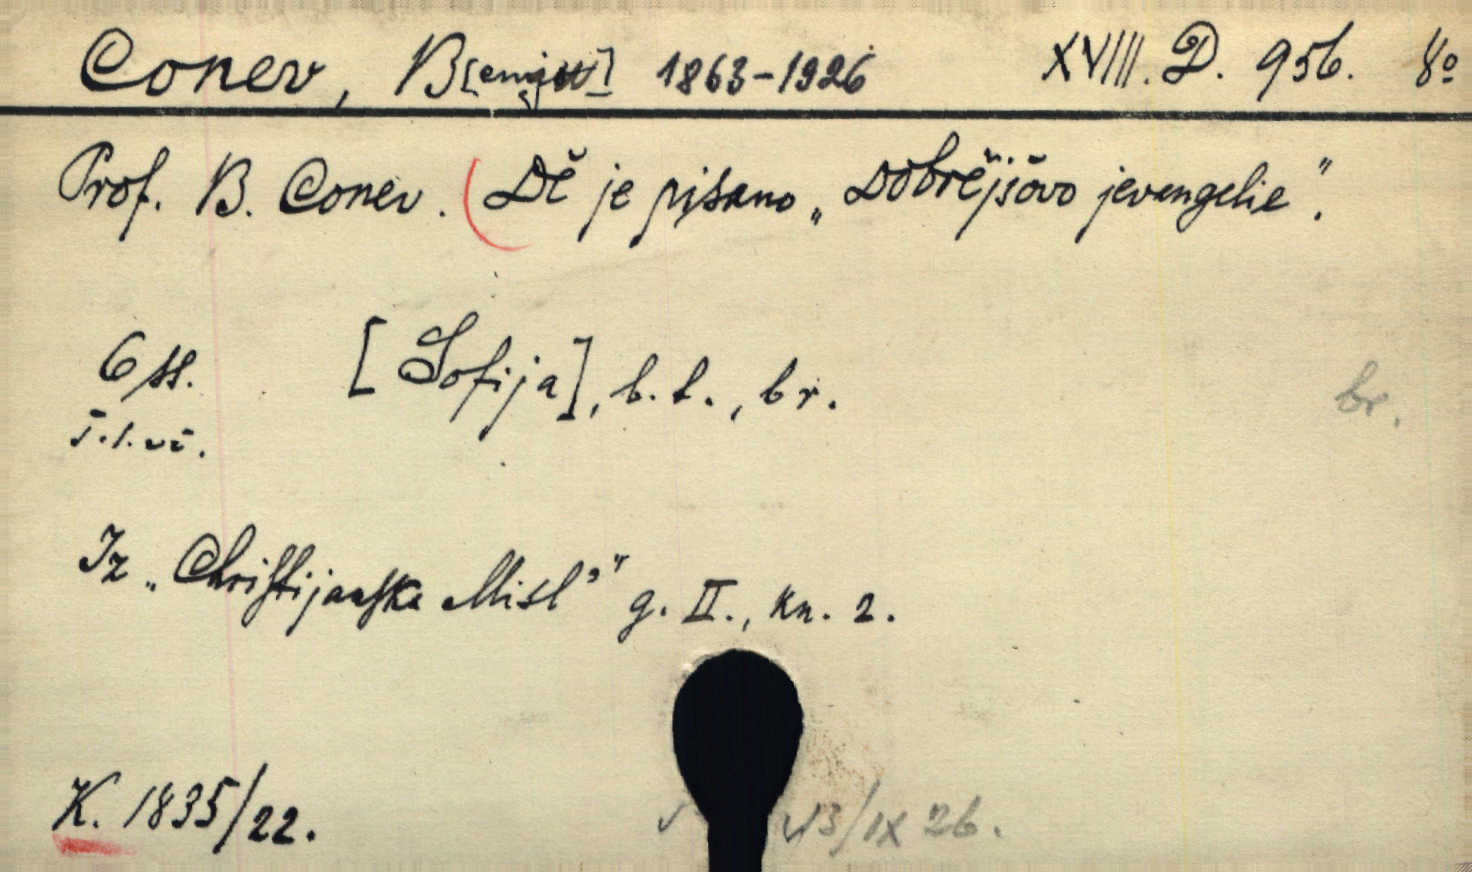 Conev, B[enju] 1863-1926 XVIII. D. 956. 8º
Prof. B. Conev. Dě je pisano „Dobrějšovo jevangelie".
6 ss. [Sofija], b. l., br. br.
Iz „Christijanska Misl'" g. II., kn. 2.
K. 1835/22. 13/IX 26.